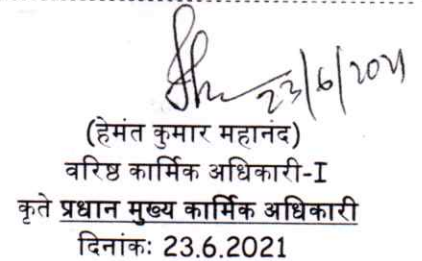 23/6/2021
(हेमंत कुमार महानंद)
वरिष्ठ कार्मिक अधिकारी-I
कृते प्रधान मुख्य कार्मिक अधिकारी
दिनांकः 23.6.2021